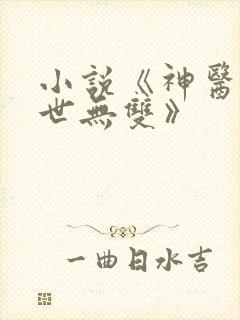 小說《神醫
世無雙》
一曲日水吉